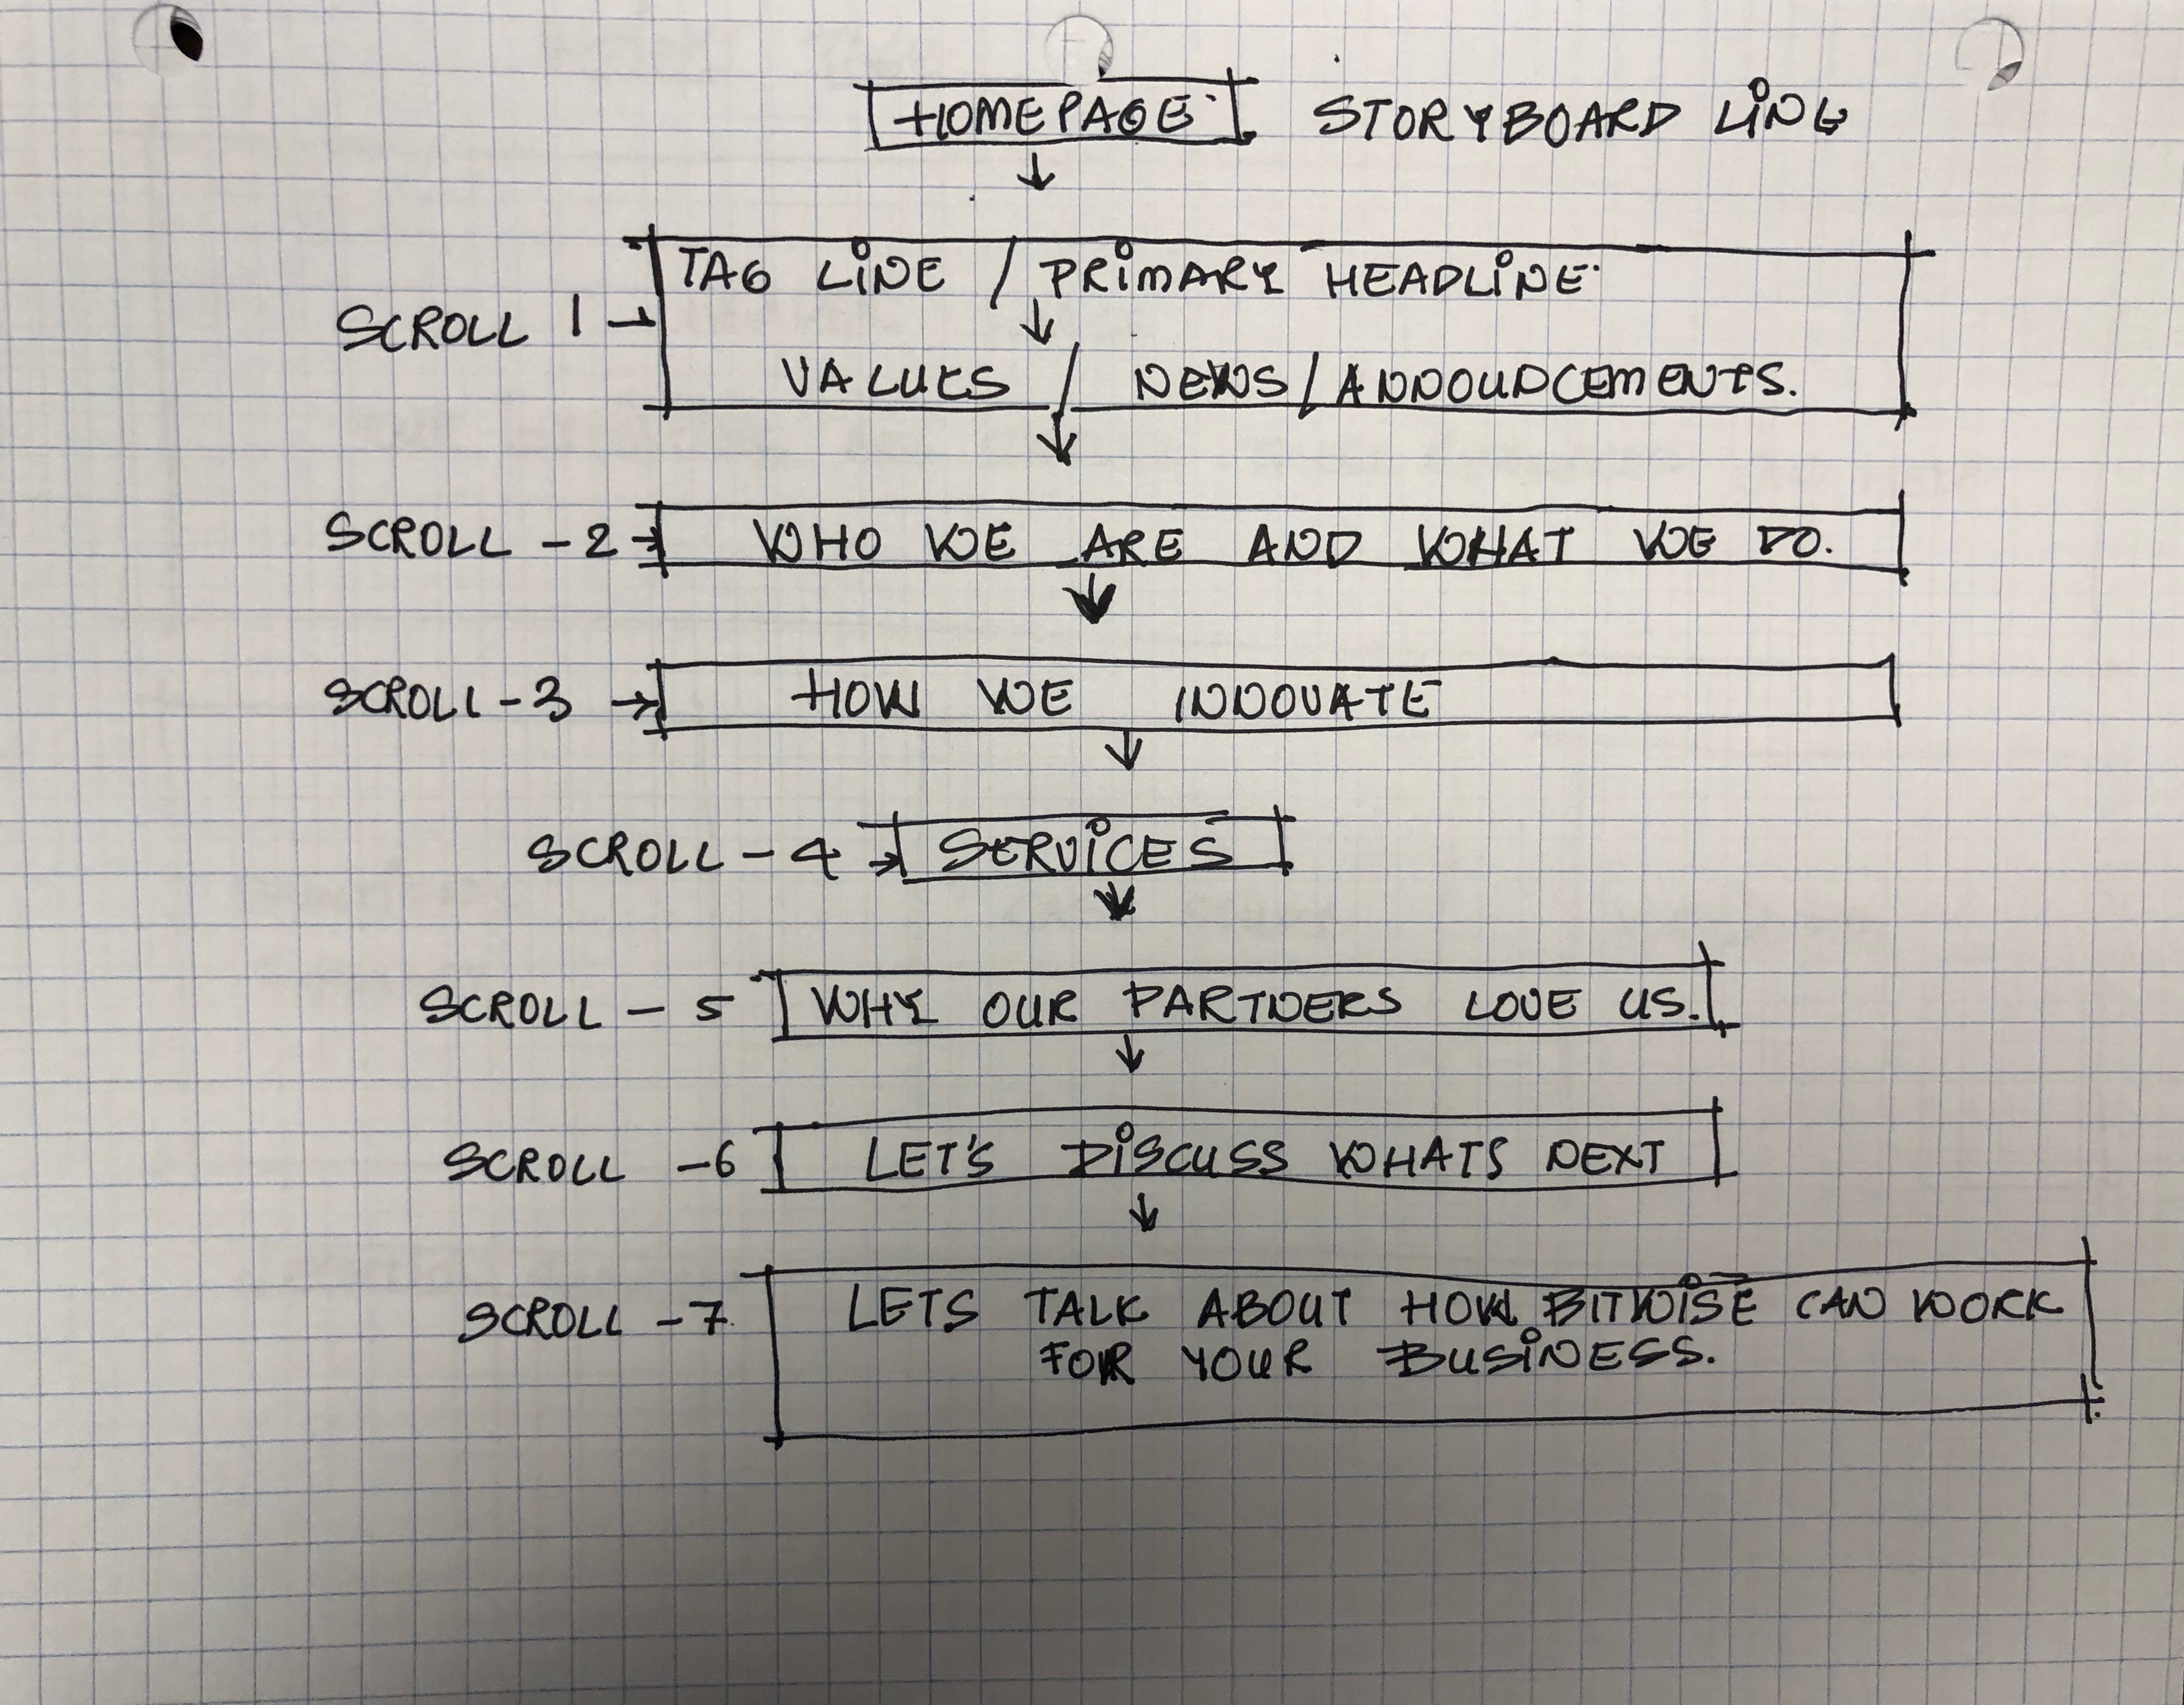 HOMEPAGE STORYBOARD LINE
TAG LINE / PRIMARY HEADLINE
SCROLL 1
VALUES / NEWS / ANNOUNCEMENTS.
SCROLL - 2 WHO WE ARE AND WHAT WE DO.
SCROLL - 3 HOW WE INNOVATE
SCROLL - 4 SERVICES
SCROLL - 5 WHY OUR PARTNERS LOVE US.
SCROLL - 6 LET'S DISCUSS WHATS NEXT
SCROLL - 7 LETS TALK ABOUT HOW BITWISE CAN WORK
FOR YOUR BUSINESS.